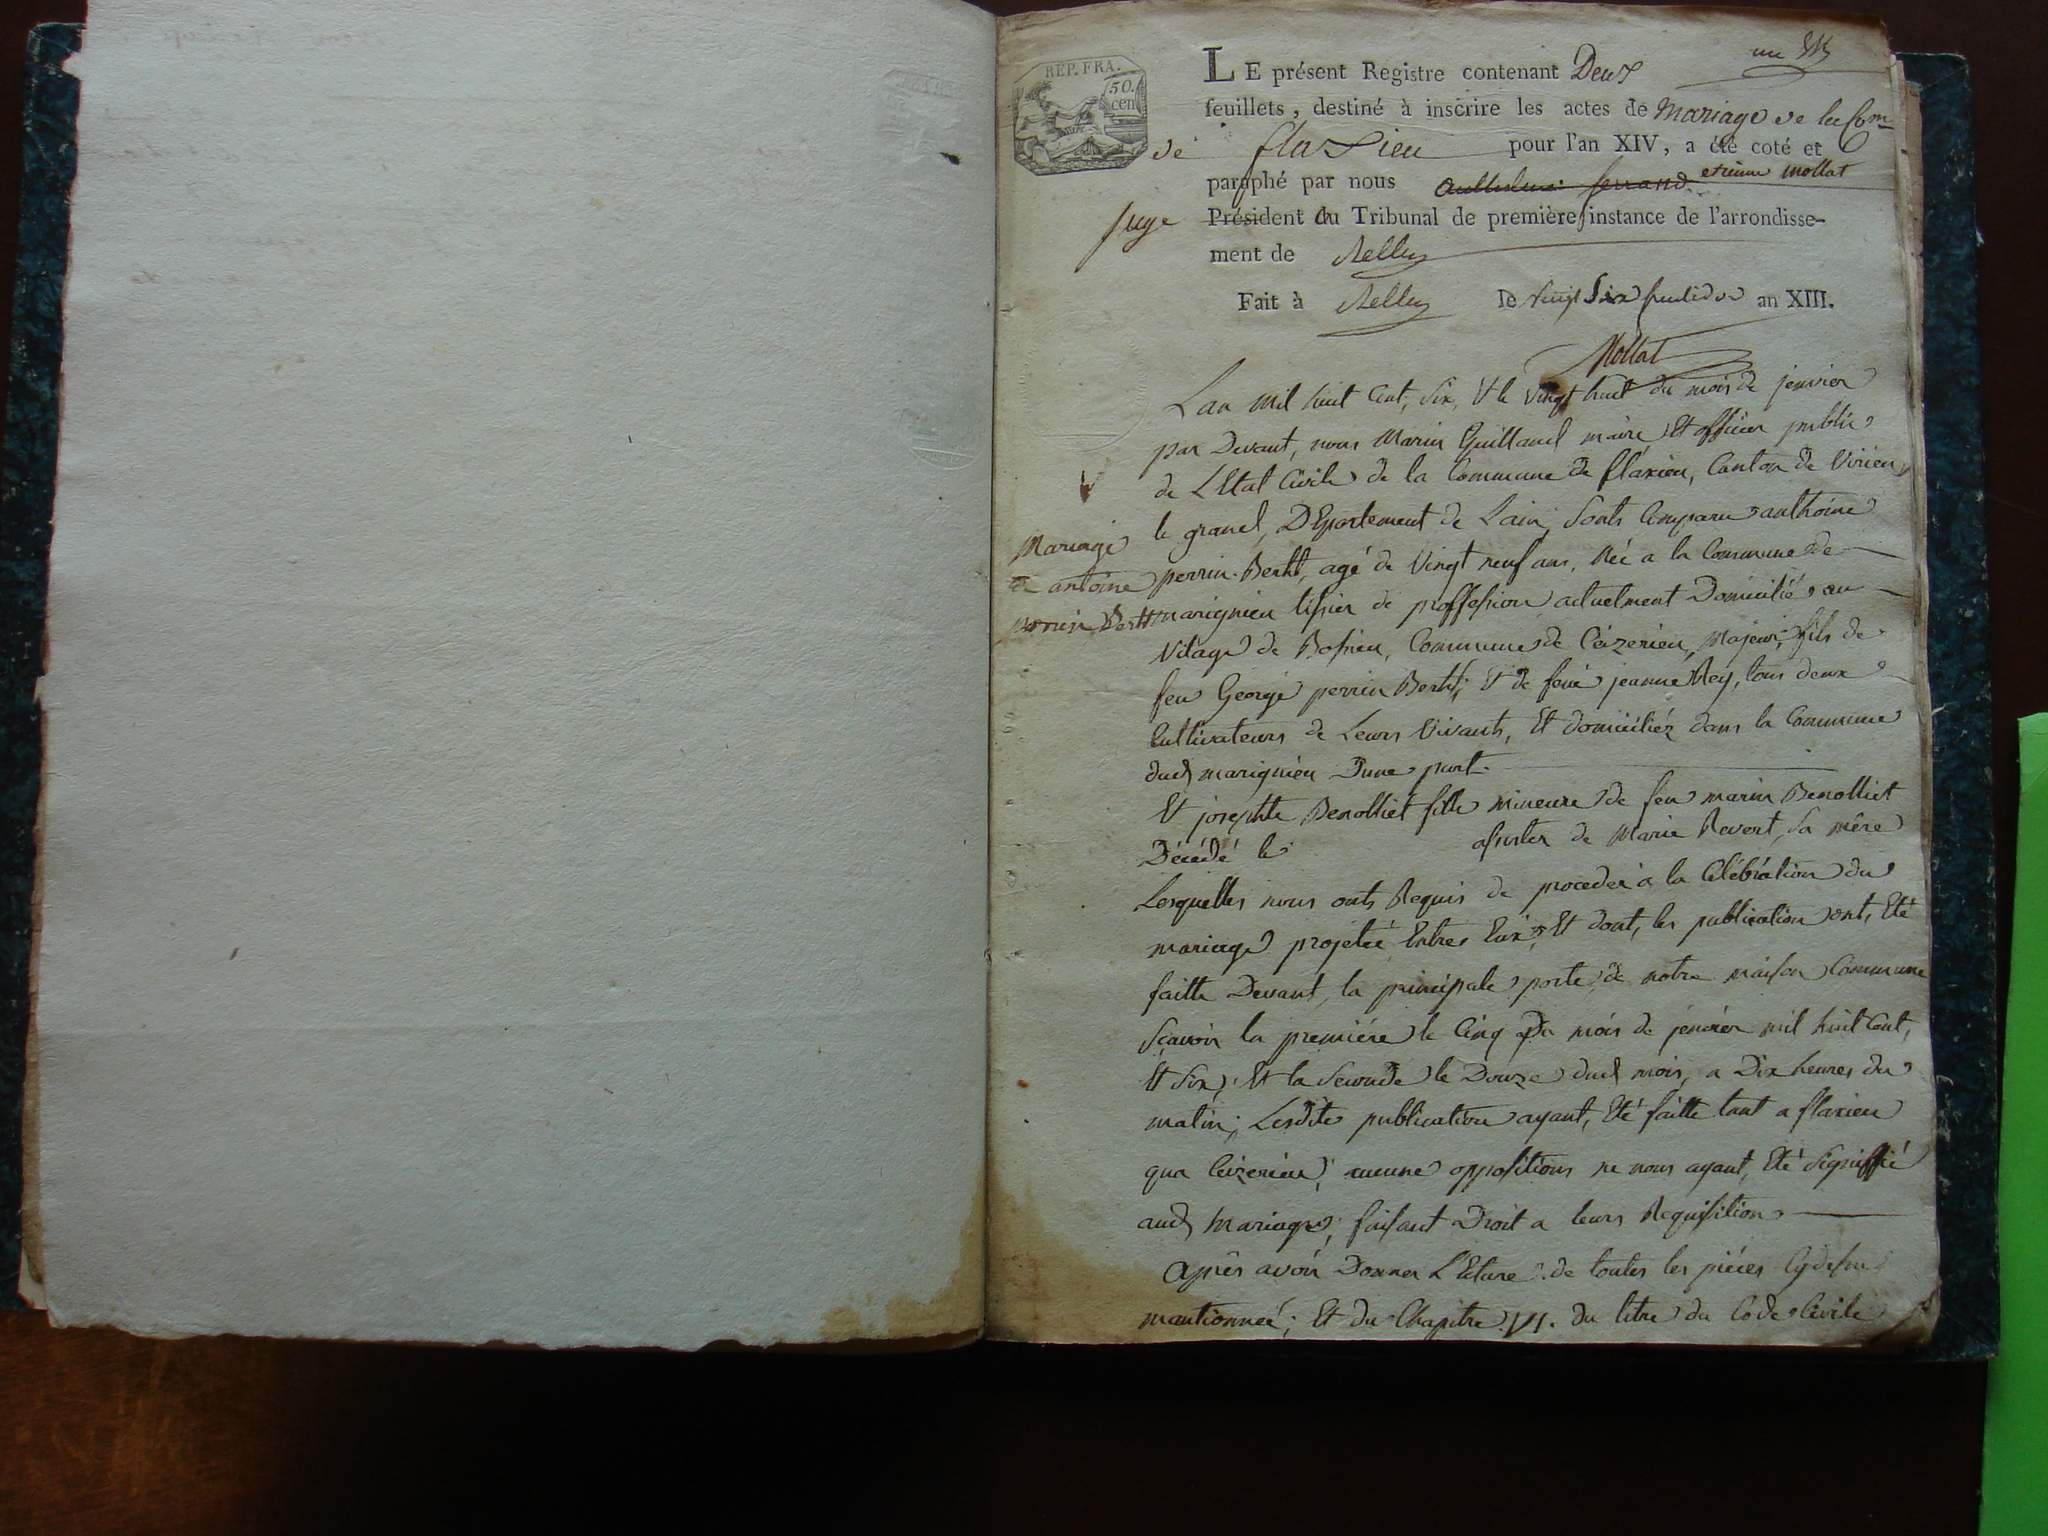 un
REP. FRA.
50.
cen
LE présent Registre contenant Deux
feuillets, destiné à inscrire les actes de Mariage de la Com
de flaxieu pour l'an XIV, a été coté et
paraphé par nous ferrand etienne mollat
juge Président du Tribunal de première instance de l'arrondisse-
ment de Belley
Fait à Belley le vingt Six fructidor an XIII.
Mollat
Lan mil huit Cent, Six, Et le vingt huit du mois de jenvier
par Devant, nous Marin Guilland maire Et officier public
de L'Etat Civile de la Commune de flaxieu, Canton de Virieu
le grand, DEpartement de Lain, Sonts Comparu anthoine
perrin-Berht, agé de Vingt neuf ans, Née a la Commune de
marignieu tissier de proffession actuelment Domicilié au
Vilage de Bossieu, Commune de Ceizerieu, Majeur, fils de
feu George perrin Berht, Et de feue jeanne Rey, tous deux
Cultivateurs de Leurs Vivants, Et domiciliéz dans la Commune
dud marignieu Dune part.
Mariage
de antoine
perrin Berht
Et josephte Benolliet fille mineure de feu marin Benolliet
Décédé le assister de Marie Revert, Sa mêre
Lesquelles nous onts Requis de proceder a la Célébration du
mariage projetée Entres Eux, Et dont, les publication ont, Eté
faitte Devant, la principale porte de notre maison Commune
Sçavoir la premiére le Cinq Du mois de jenvier mil huit Cent,
Et Six, Et la Seconde le Douze dud mois, a Dix heures du
matin; Lesdite publication ayant, Eté faitte tant a flaxieu
qua Ceizerieu; aucune oppositions ne nous ayant, Eté Signiffié
aud Mariage; faisant Droit a leurs Requisition
Aprês avoir Donner L'Ecture de toutes les piéces Cydessu
mantionneé; Et du Chapitre VI. du titre du Code Civile